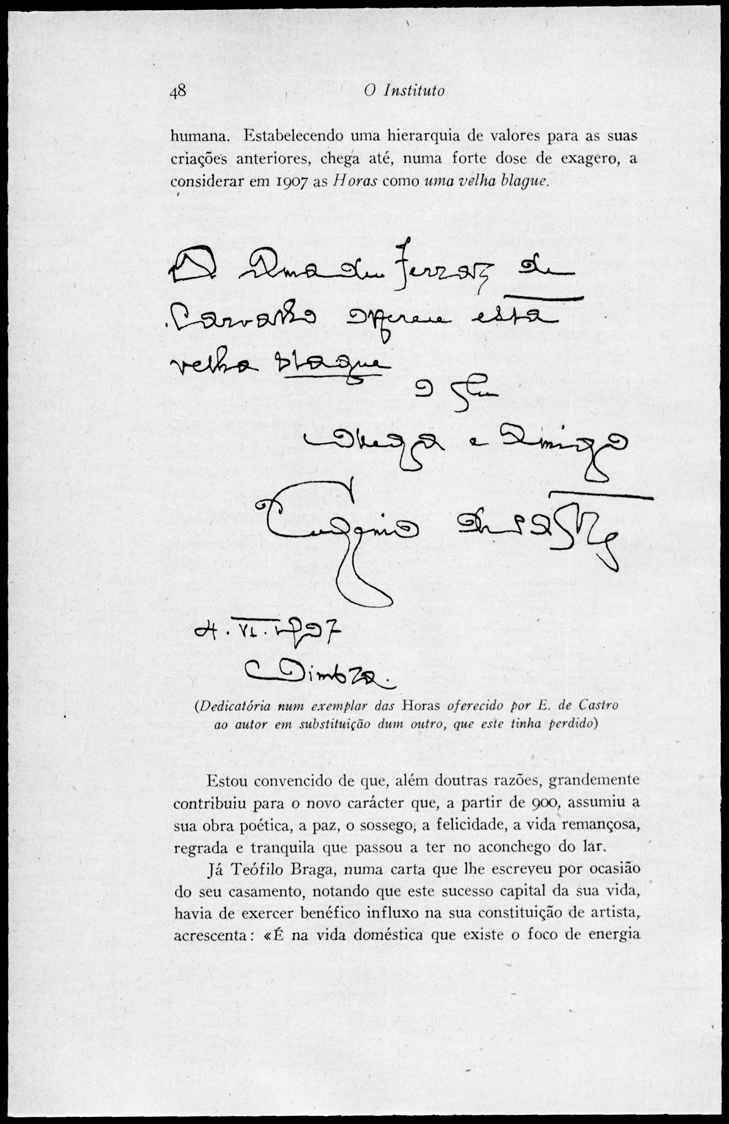 48 O Instituto
humana. Estabelecendo uma hierarquia de valores para as suas
criações anteriores, chega até, numa forte dose de exagero, a
considerar em 1907 as Horas como uma velha blague.
A Amadeu Ferraz de
Carvalho oferece esta
velha blague
o seu
collega e amigo
Eugenio de Castro
4.VI.1907
Coimbra.
(Dedicatória num exemplar das Horas oferecido por E. de Castro
ao autor em substituição dum outro, que este tinha perdido)
Estou convencido de que, além doutras razões, grandemente
contribuiu para o novo carácter que, a partir de 900, assumiu a
sua obra poética, a paz, o sossego, a felicidade, a vida remançosa,
regrada e tranquila que passou a ter no aconchego do lar.
Já Teófilo Braga, numa carta que lhe escreveu por ocasião
do seu casamento, notando que este sucesso capital da sua vida,
havia de exercer benéfico influxo na sua constituição de artista,
acrescenta: «É na vida doméstica que existe o foco de energia